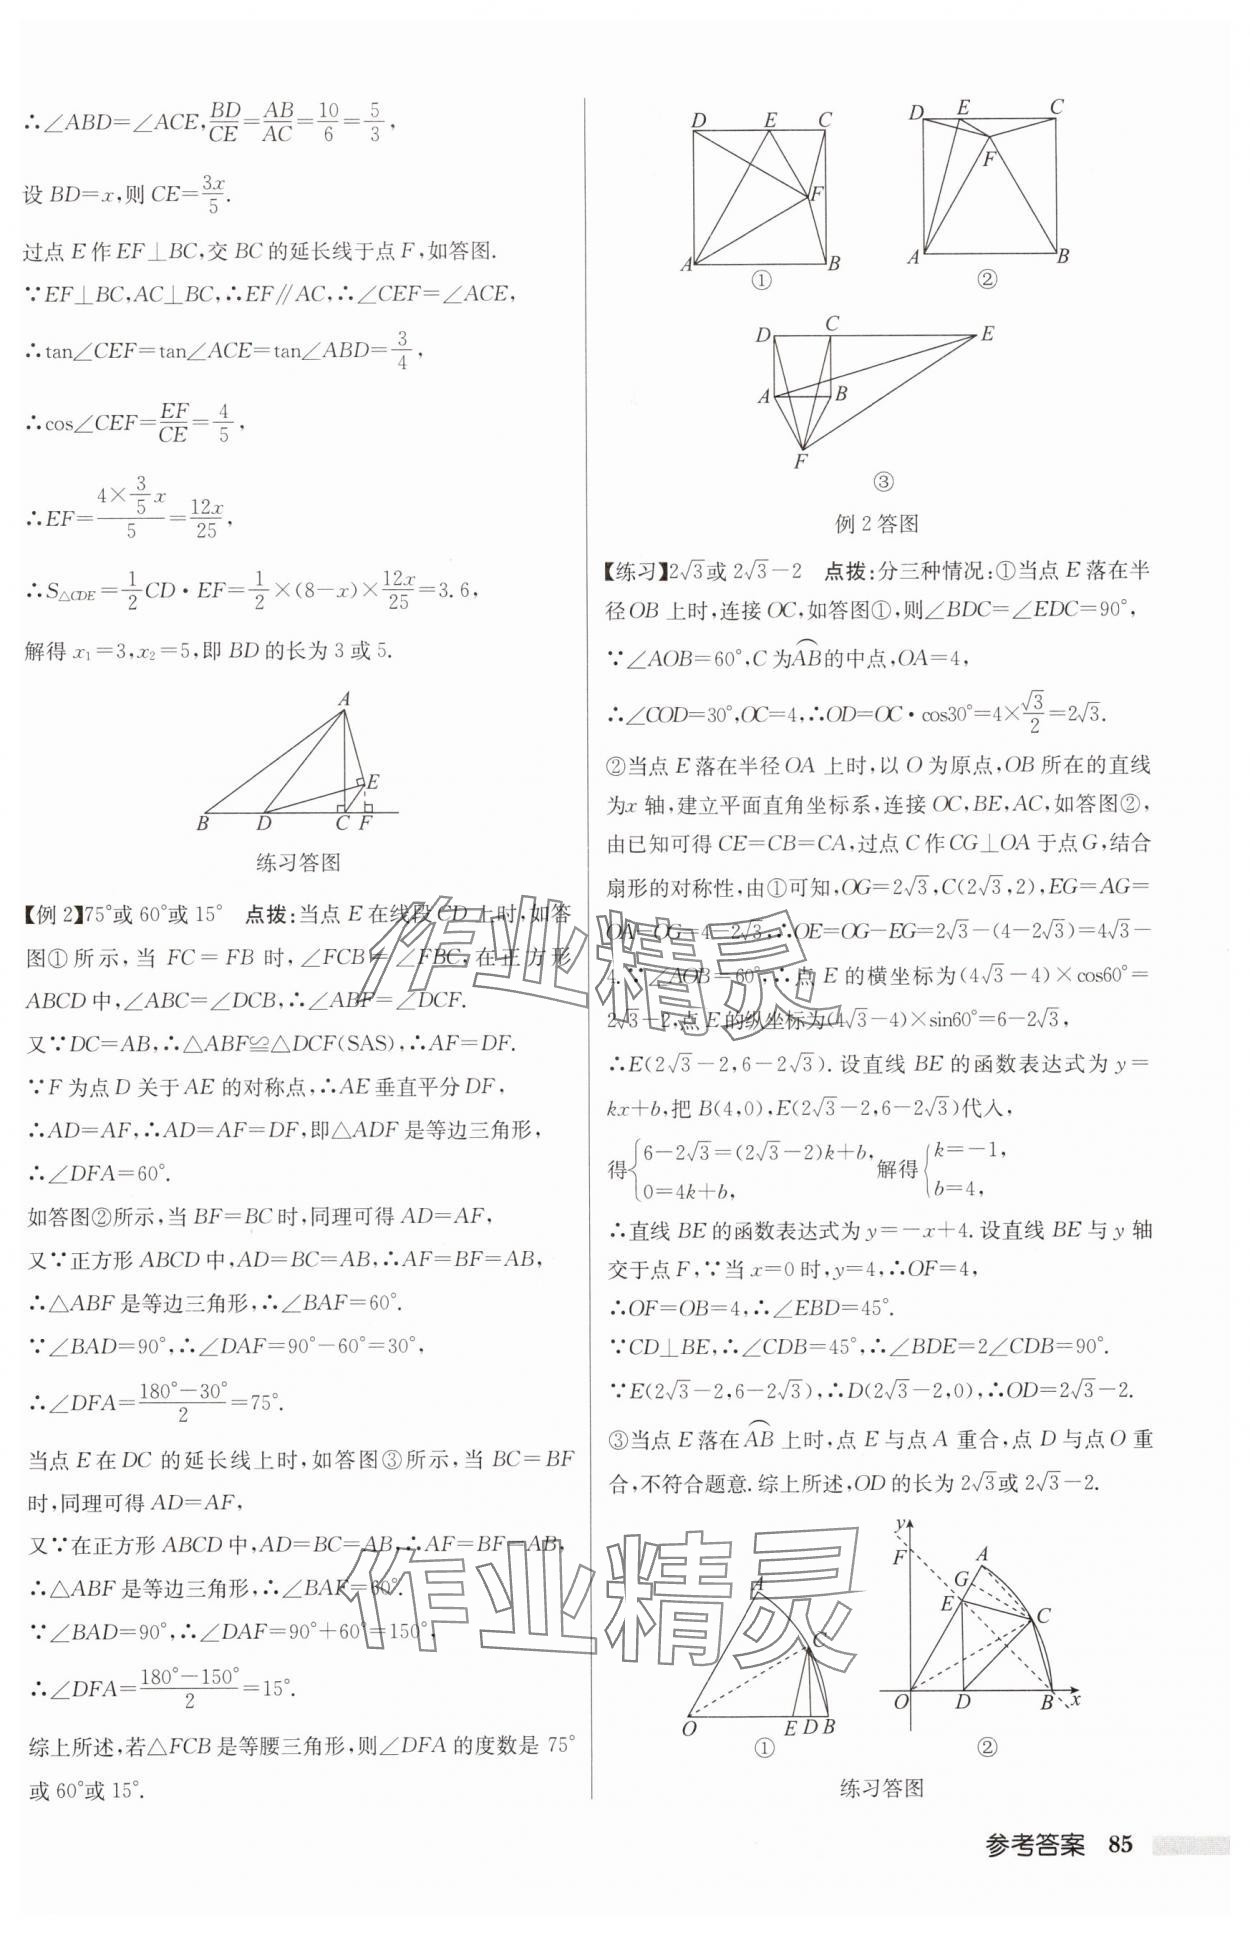 ∴∠ABD=∠ACE,BD/CE=AB/AC=10/6=5/3,
设 BD=x,则 CE=3x/5.
过点 E 作 EF⊥BC,交 BC 的延长线于点 F,如答图.
∵EF⊥BC,AC⊥BC,∴EF∥AC,∴∠CEF=∠ACE,
∴tan∠CEF=tan∠ACE=tan∠ABD=3/4,
∴cos∠CEF=EF/CE=4/5,
∴EF=(4×3/5x)/5=12x/25,
∴S△CDE=1/2CD·EF=1/2×(8-x)×12x/25=3.6,
解得 x₁=3,x₂=5,即 BD 的长为 3 或 5.
A
E
B D C F
练习答图
【例 2】75°或 60°或 15° 点拨:当点 E 在线段 CD 上时,如答
图①所示,当 FC=FB 时,∠FCB=∠FBC,在正方形
ABCD 中,∠ABC=∠DCB,∴∠ABF=∠DCF.
又∵DC=AB,∴△ABF≌△DCF(SAS),∴AF=DF.
∵F 为点 D 关于 AE 的对称点,∴AE 垂直平分 DF,
∴AD=AF,∴AD=AF=DF,即△ADF 是等边三角形,
∴∠DFA=60°.
如答图②所示,当 BF=BC 时,同理可得 AD=AF,
又∵正方形 ABCD 中,AD=BC=AB,∴AF=BF=AB,
∴△ABF 是等边三角形,∴∠BAF=60°.
∵∠BAD=90°,∴∠DAF=90°-60°=30°,
∴∠DFA=(180°-30°)/2=75°.
当点 E 在 DC 的延长线上时,如答图③所示,当 BC=BF
时,同理可得 AD=AF,
又∵在正方形 ABCD 中,AD=BC=AB,∴AF=BF=AB,
∴△ABF 是等边三角形,∴∠BAF=60°.
∵∠BAD=90°,∴∠DAF=90°+60°=150°,
∴∠DFA=(180°-150°)/2=15°.
综上所述,若△FCB 是等腰三角形,则∠DFA 的度数是 75°
或 60°或 15°.
D E C
F
A B
①
D E C
F
A B
②
D C E
A B
F
③
例 2 答图
【练习】2√3或 2√3-2 点拨:分三种情况:①当点 E 落在半
径 OB 上时,连接 OC,如答图①,则∠BDC=∠EDC=90°,
∵∠AOB=60°,C 为A͡B的中点,OA=4,
∴∠COD=30°,OC=4,∴OD=OC·cos30°=4×√3/2=2√3.
②当点 E 落在半径 OA 上时,以 O 为原点,OB 所在的直线
为 x 轴,建立平面直角坐标系,连接 OC,BE,AC,如答图②,
由已知可得 CE=CB=CA,过点 C 作 CG⊥OA 于点 G,结合
扇形的对称性,由①可知,OG=2√3,C(2√3,2),EG=AG=
OA-OG=4-2√3,∴OE=OG-EG=2√3-(4-2√3)=4√3-
4.∵∠AOB=60°,∴点 E 的横坐标为(4√3-4)×cos60°=
2√3-2,点 E 的纵坐标为(4√3-4)×sin60°=6-2√3,
∴E(2√3-2,6-2√3).设直线 BE 的函数表达式为 y=
kx+b,把 B(4,0),E(2√3-2,6-2√3)代入,
得{6-2√3=(2√3-2)k+b, 0=4k+b, 解得{k=-1, b=4,
∴直线 BE 的函数表达式为 y=-x+4.设直线 BE 与 y 轴
交于点 F,∵当 x=0 时,y=4,∴OF=4,
∴OF=OB=4,∴∠EBD=45°.
∵CD⊥BE,∴∠CDB=45°,∴∠BDE=2∠CDB=90°.
∵E(2√3-2,6-2√3),∴D(2√3-2,0),∴OD=2√3-2.
③当点 E 落在A͡B 上时,点 E 与点 A 重合,点 D 与点 O 重
合,不符合题意.综上所述,OD 的长为 2√3或 2√3-2.
A
C
O E D B
①
y
F
A
G
E
C
O D B x
②
练习答图
参考答案 85
作业精灵
作业精灵